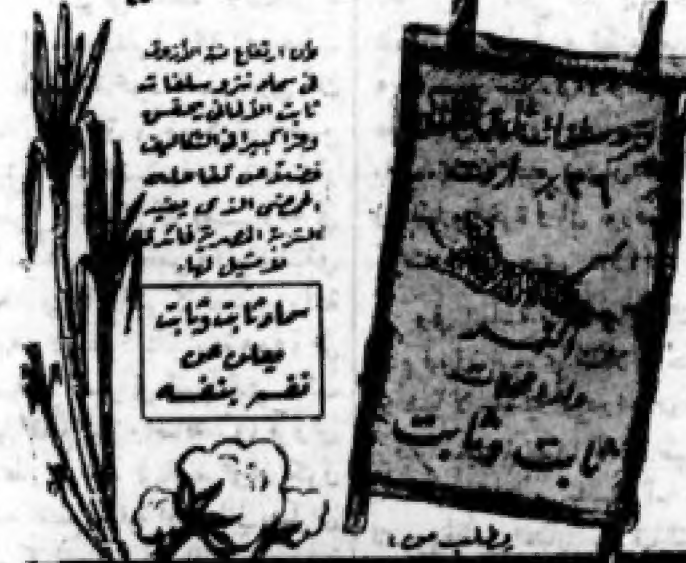 وإن ارتفاع نسبة الأزوت
في سماد نتروسلفات
ثابت الألماني يحقق
وفرا كبيرا في التكاليف
فضلا عن تفاعله
الحمضي الذي يفيد
التربة المصرية فائدة
لا مثيل لها.
سماد ثابت وثابت
يعلن عن
نفسه بنفسه
نتروسلفات
٢٦ ٪ أزوت
النسر
ثابت وثابت
يطلب من :